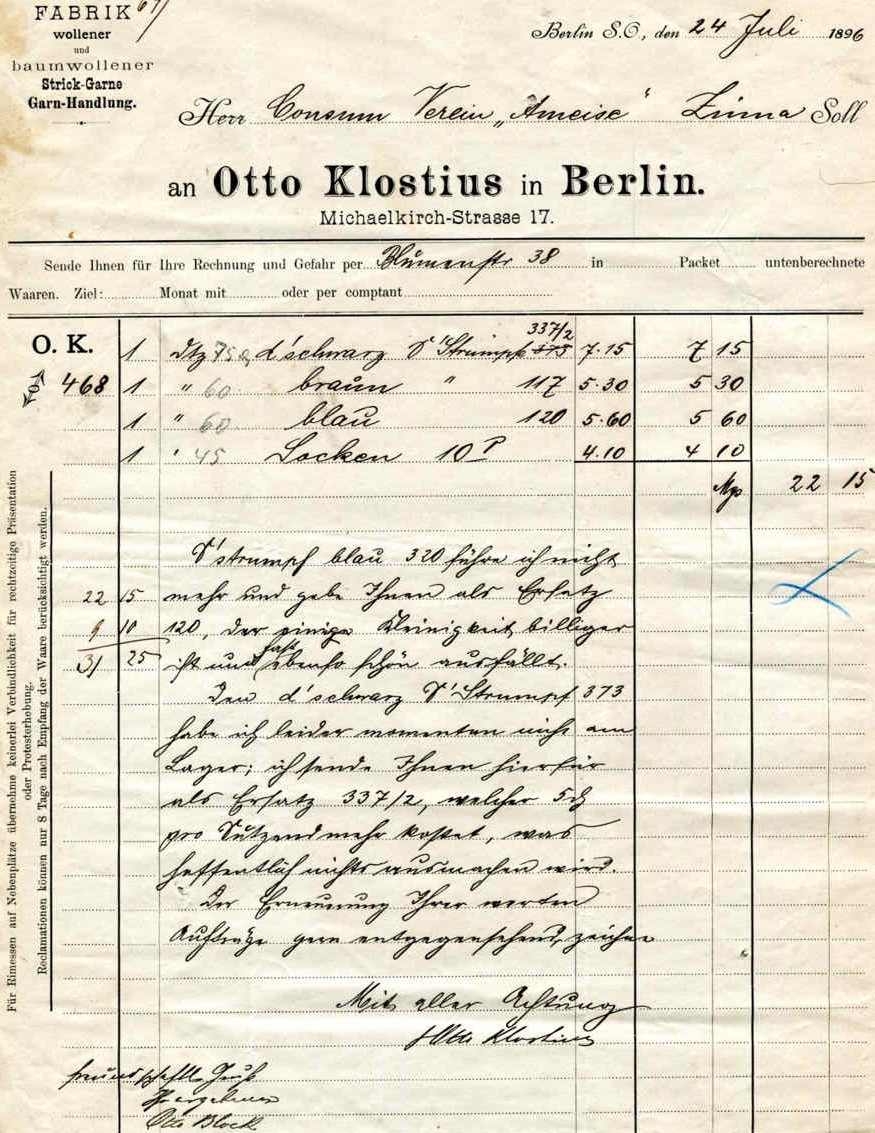 FABRIK
wollener
und
baumwollener
Strick-Garne
Garn-Handlung.
Berlin S.O., den 24 Juli 1896
Herr Consum Verein „Ameise“ Zinna Soll
an Otto Klostius in Berlin.
Michaelkirch-Strasse 17.
Sende Ihnen für Ihre Rechnung und Gefahr per Blumenstr 38 in Packet untenberechnete
Waaren. Ziel: Monat mit oder per comptant
O. K.
337/2
1 Dtz 75 d'schwarz D'Strumpf 373 7.15 7 15
468 1 " 60 braun " 117 5.30 5 30
1 " 60 blau 120 5.60 5 60
1 " 45 Socken 10 P 4.10 4 10
22 15
D'strumpf blau 320 führe ich nicht
22 15 mehr und gebe Ihnen als Ersatz
9 10 120, der einige Kleinigkeit billiger
31 25 ist und fast ebenso schön ausfällt.
Den d'schwarz D'Strumpf 373
habe ich leider momentan nicht am
Lager; ich sende Ihnen hierfür
als Ersatz 337/2, welcher 5 d
pro Dutzend mehr kostet, was
hoffentlich nichts ausmachen wird.
Der Erneuerung Ihrer werten
Aufträge gern entgegensehend, zeichne
Mit aller Achtung
Otto Klostius
freundschaftl. Gruß
Ihr ergebener
Otto Block
Für Rimessen auf Nebenplätze übernehme keinerlei Verbindlichkeit für rechtzeitige Präsentation
oder Protesterhobung.
Reclamationen können nur 8 Tage nach Empfang der Waare berücksichtigt werden.